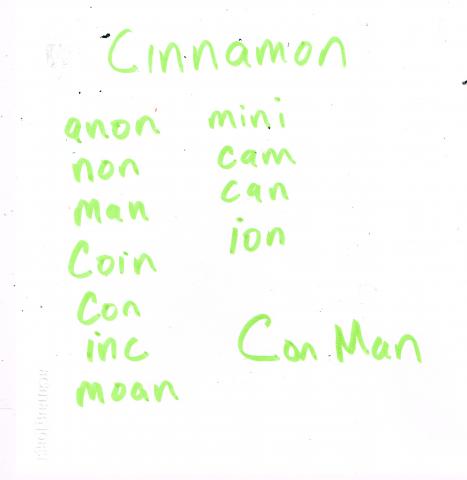 Cinnamon
anon
non
man
Coin
Con
inc
moan
mini
cam
can
ion
Con Man